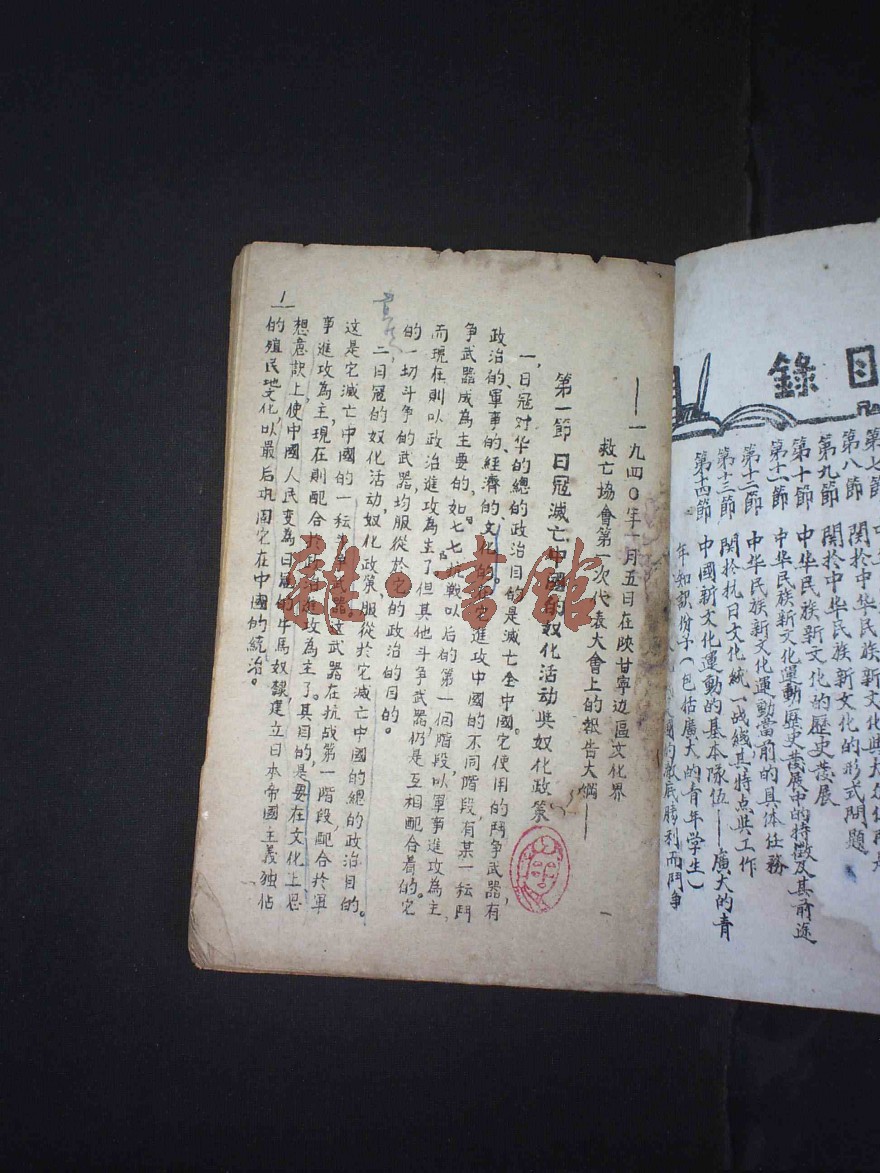 目錄
第七節
第八節 關於中华民族新文化的形式問題
第九節 中华民族新文化的歷史發展
第十節 中华民族新文化運動歷史發展中的特徵及其前途
第十一節 中华民族新文化運動當前的具体任務
第十二節 關於抗日文化統一战綫其特点與工作
第十三節 中國新文化運動的基本隊伍——廣大的青
第十四節 年知識份子(包括廣大的青年学生)
的徹底勝利而鬥争
——一九四〇年一月五日在陝甘宁边區文化界
救亡協會第一次代表大會上的報告大綱——
第一節 日寇滅亡中國的奴化活动與奴化政策
一,日寇对华的總的政治目的是滅亡全中國。它使用的鬥争武器有
政治的、軍事的、經濟的、文化的。在它進攻中國的不同階段,有某一种鬥
争武器成為主要的。如七七抗戰以后的第一個階段,以軍事進攻為主,
而現在則以政治進攻為主了。但其他斗争武器,仍是互相配合着的。它
的一切斗争的武器,均服從於它的政治的目的。
二日寇的奴化活动,奴化政策,服從於它滅亡中國的總的政治目的。
这是它滅亡中國的一种争武器。这武器在抗战第一階段,配合於軍
事進攻為主,現在則配合於政治進攻為主了。其目的,是要在文化上思
想意識上,使中國人民变為日寇的牛馬奴隸,建立日本帝國主義独佔
的殖民地文化,以最后巩固它在中國的統治。
一
雜·書館